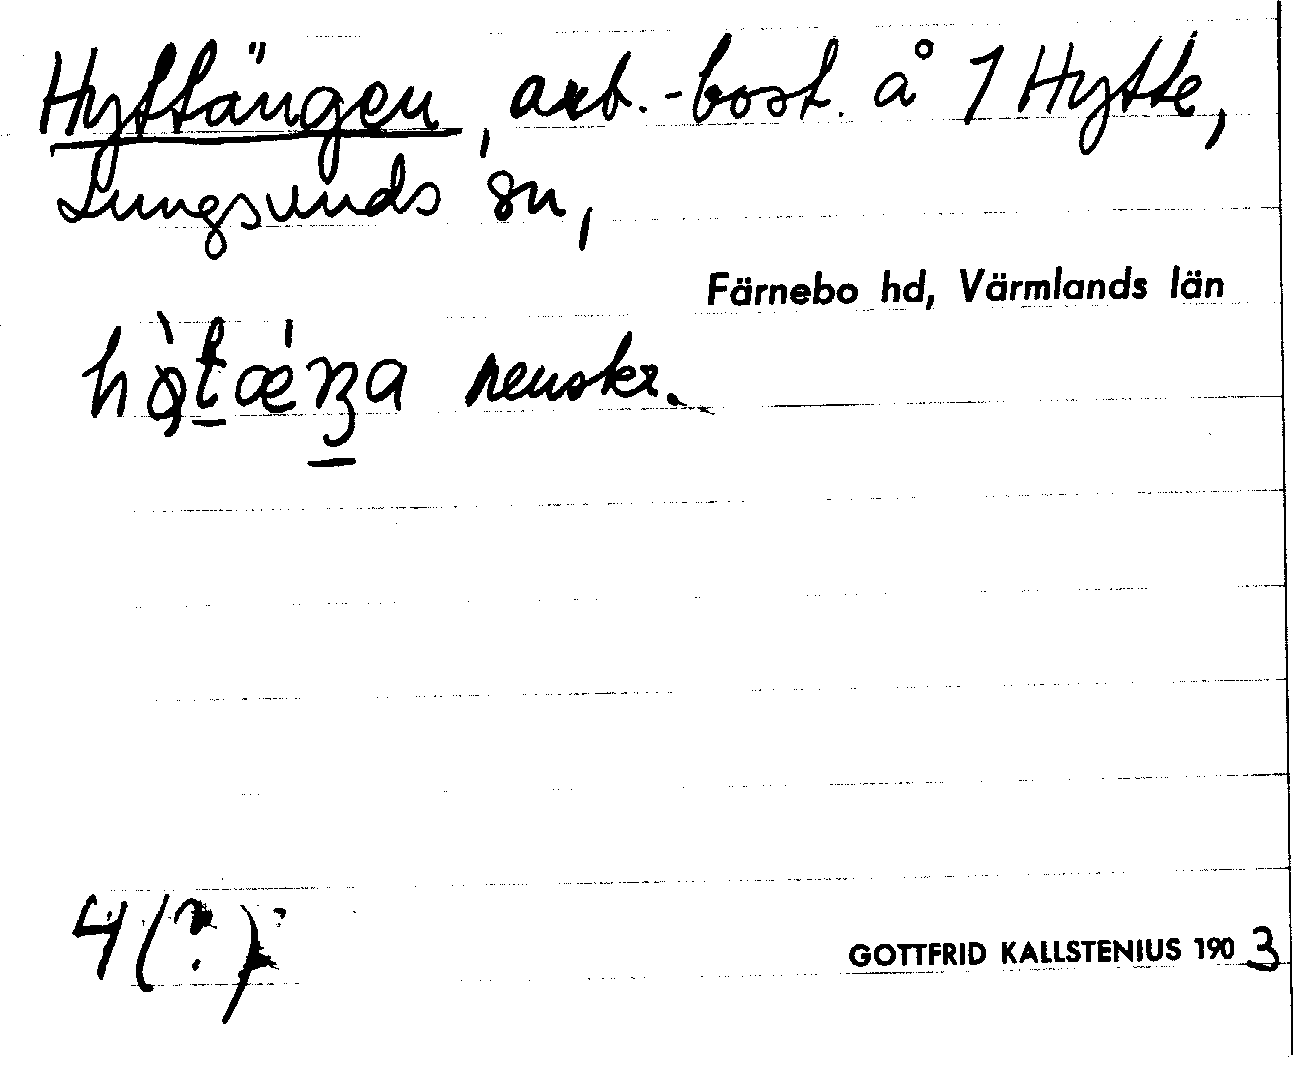 Hyttängen, arb.-bost. å 1 Hytte,
Lungsunds sn,
Färnebo hd, Värmlands län
renskr.
4 (?)
GOTTFRID KALLSTENIUS 1903